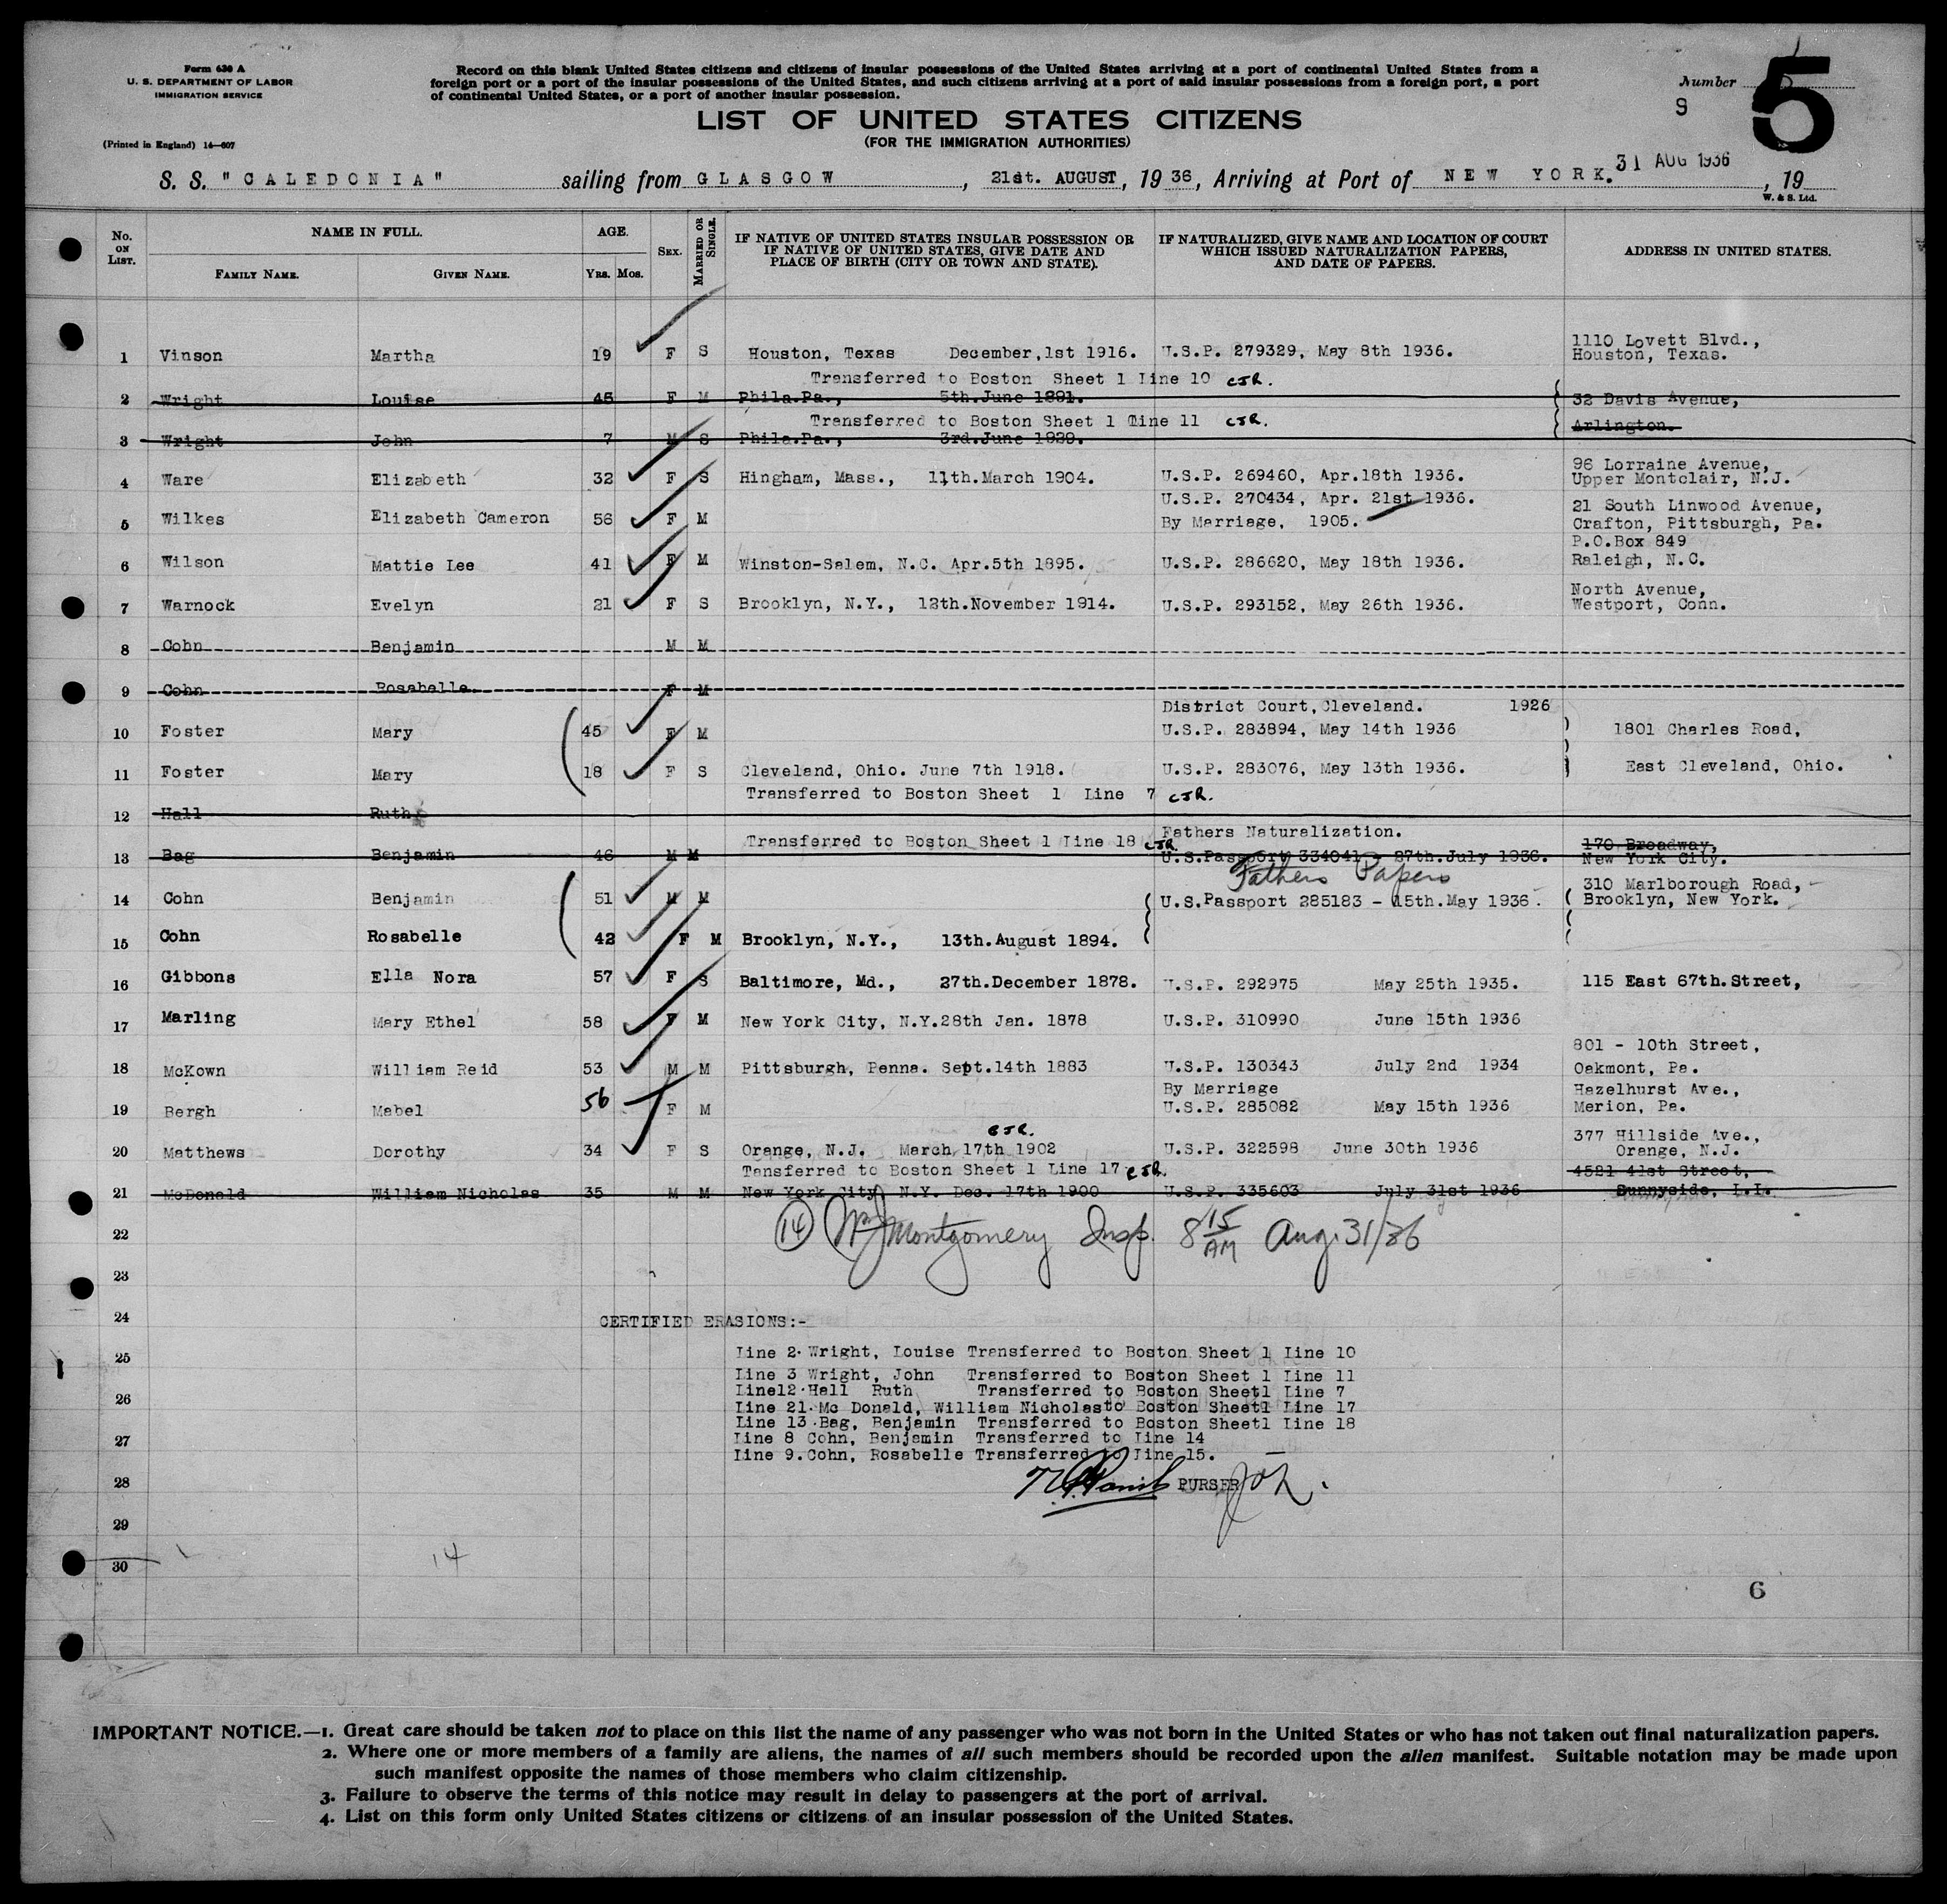 Form 630 A
U. S. DEPARTMENT OF LABOR
IMMIGRATION SERVICE
(Printed in England) 14—607
Record on this blank United States citizens and citizens of insular possessions of the United States arriving at a port of continental United States from a
foreign port or a port of the insular possessions of the United States, and such citizens arriving at a port of said insular possessions from a foreign port, a port
of continental United States, or a port of another insular possession.
Number 5
9
LIST OF UNITED STATES CITIZENS
(FOR THE IMMIGRATION AUTHORITIES)
S. S. "CALEDONIA" sailing from GLASGOW, 21st. AUGUST, 19 36, Arriving at Port of NEW YORK. 31 AUG 1936, 19
W. & S. Ltd.
No. ON LIST. NAME IN FULL. FAMILY NAME. GIVEN NAME. AGE. YRS. MOS. SEX. MARRIED OR SINGLE. IF NATIVE OF UNITED STATES INSULAR POSSESSION OR IF NATIVE OF UNITED STATES, GIVE DATE AND PLACE OF BIRTH (CITY OR TOWN AND STATE). IF NATURALIZED, GIVE NAME AND LOCATION OF COURT WHICH ISSUED NATURALIZATION PAPERS, AND DATE OF PAPERS. ADDRESS IN UNITED STATES.
1 Vinson Martha 19 F S Houston, Texas December,1st 1916. U.S.P. 279329, May 8th 1936. 1110 Lovett Blvd., Houston, Texas.
Transferred to Boston Sheet 1 Line 10 CJR.
2 Wright Louise 45 F M Phila.Pa., 5th.June 1891. 32 Davis Avenue,
Transferred to Boston Sheet 1 Line 11 CJR.
3 Wright John 7 M S Phila.Pa., 3rd.June 1929. Arlington.
4 Ware Elizabeth 32 F S Hingham, Mass., 11th.March 1904. U.S.P. 269460, Apr.18th 1936. 96 Lorraine Avenue, Upper Montclair, N.J.
U.S.P. 270434, Apr. 21st 1936.
5 Wilkes Elizabeth Cameron 56 F M By Marriage, 1905. 21 South Linwood Avenue, Crafton, Pittsburgh, Pa.
6 Wilson Mattie Lee 41 F M Winston-Salem, N.C. Apr.5th 1895. U.S.P. 286620, May 18th 1936. P.O.Box 849 Raleigh, N.C.
7 Warnock Evelyn 21 F S Brooklyn, N.Y., 12th.November 1914. U.S.P. 293152, May 26th 1936. North Avenue, Westport, Conn.
8 Cohn Benjamin M M
9 Cohn Rosabelle F M
District Court,Cleveland. 1926
10 Foster Mary 45 F M U.S.P. 283894, May 14th 1936 1801 Charles Road,
11 Foster Mary 18 F S Cleveland, Ohio. June 7th 1918. U.S.P. 283076, May 13th 1936. East Cleveland, Ohio.
Transferred to Boston Sheet 1 Line 7 CJR.
12 Hall Ruth
Transferred to Boston Sheet 1 Line 18 CJR. Fathers Naturalization.
13 Bag Benjamin 46 M M U.S.Passport 334041 - 27th.July 1936. 170 Broadway, New York City.
Fathers Papers
14 Cohn Benjamin 51 M M U.S.Passport 285183 - 15th.May 1936. 310 Marlborough Road, Brooklyn, New York.
15 Cohn Rosabelle 42 F M Brooklyn, N.Y., 13th.August 1894.
16 Gibbons Ella Nora 57 F S Baltimore, Md., 27th.December 1878. U.S.P. 292975 May 25th 1935. 115 East 67th.Street,
17 Marling Mary Ethel 58 F M New York City, N.Y.28th Jan. 1878 U.S.P. 310990 June 15th 1936
18 McKown William Reid 53 M M Pittsburgh, Penna. Sept.14th 1883 U.S.P. 130343 July 2nd 1934 801 - 10th Street, Oakmont, Pa.
By Marriage
19 Bergh Mabel 56 F M U.S.P. 285082 May 15th 1936 Hazelhurst Ave., Merion, Pa.
CJR.
20 Matthews Dorothy 34 F S Orange, N.J. March 17th 1902 U.S.P. 322598 June 30th 1936 377 Hillside Ave., Orange, N.J.
Tansferred to Boston Sheet 1 Line 17 CJR.
21 McDonald William Nicholas 35 M M New York City, N.Y. Dec. 17th 1900 U.S.P. 335603 July 31st 1936 4521 41st Street, Sunnyside, L.I.
22 (14) Wm J Montgomery Insp. 8 15 AM Aug. 31/36
23
24 CERTIFIED ERASIONS:-
25 Line 2. Wright, Louise Transferred to Boston Sheet 1 Line 10
Line 3 Wright, John Transferred to Boston Sheet 1 Line 11
26 Line12.Hall Ruth Transferred to Boston Sheet1 Line 7
Line 21. Mc Donald, William Nicholas to Boston Sheet1 Line 17
Line 13.Bag, Benjamin Transferred to Boston Sheet1 Line 18
27 Line 8 Cohn, Benjamin Transferred to Line 14
Line 9.Cohn, Rosabelle Transferred to Line 15.
28 PURSER
29
30 14
6
IMPORTANT NOTICE.—1. Great care should be taken not to place on this list the name of any passenger who was not born in the United States or who has not taken out final naturalization papers.
2. Where one or more members of a family are aliens, the names of all such members should be recorded upon the alien manifest. Suitable notation may be made upon
such manifest opposite the names of those members who claim citizenship.
3. Failure to observe the terms of this notice may result in delay to passengers at the port of arrival.
4. List on this form only United States citizens or citizens of an insular possession of the United States.